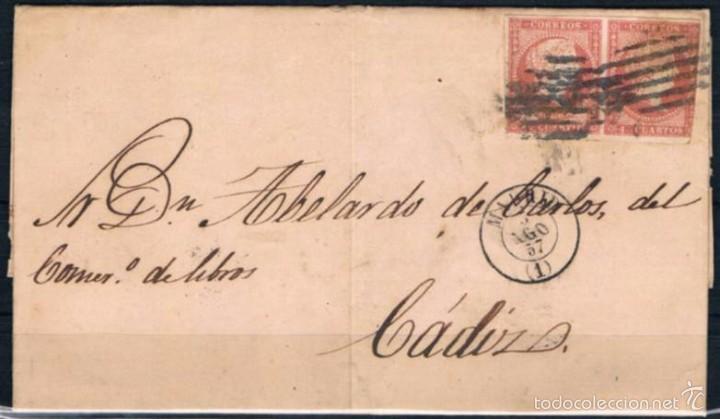 CORREOS CORREOS
4 CUARTOS
Sr Dn Abelardo de Carlos, del
Comer.º de libros
Cádiz.
MADRID
AGO
57
(1)
todocoleccion.net